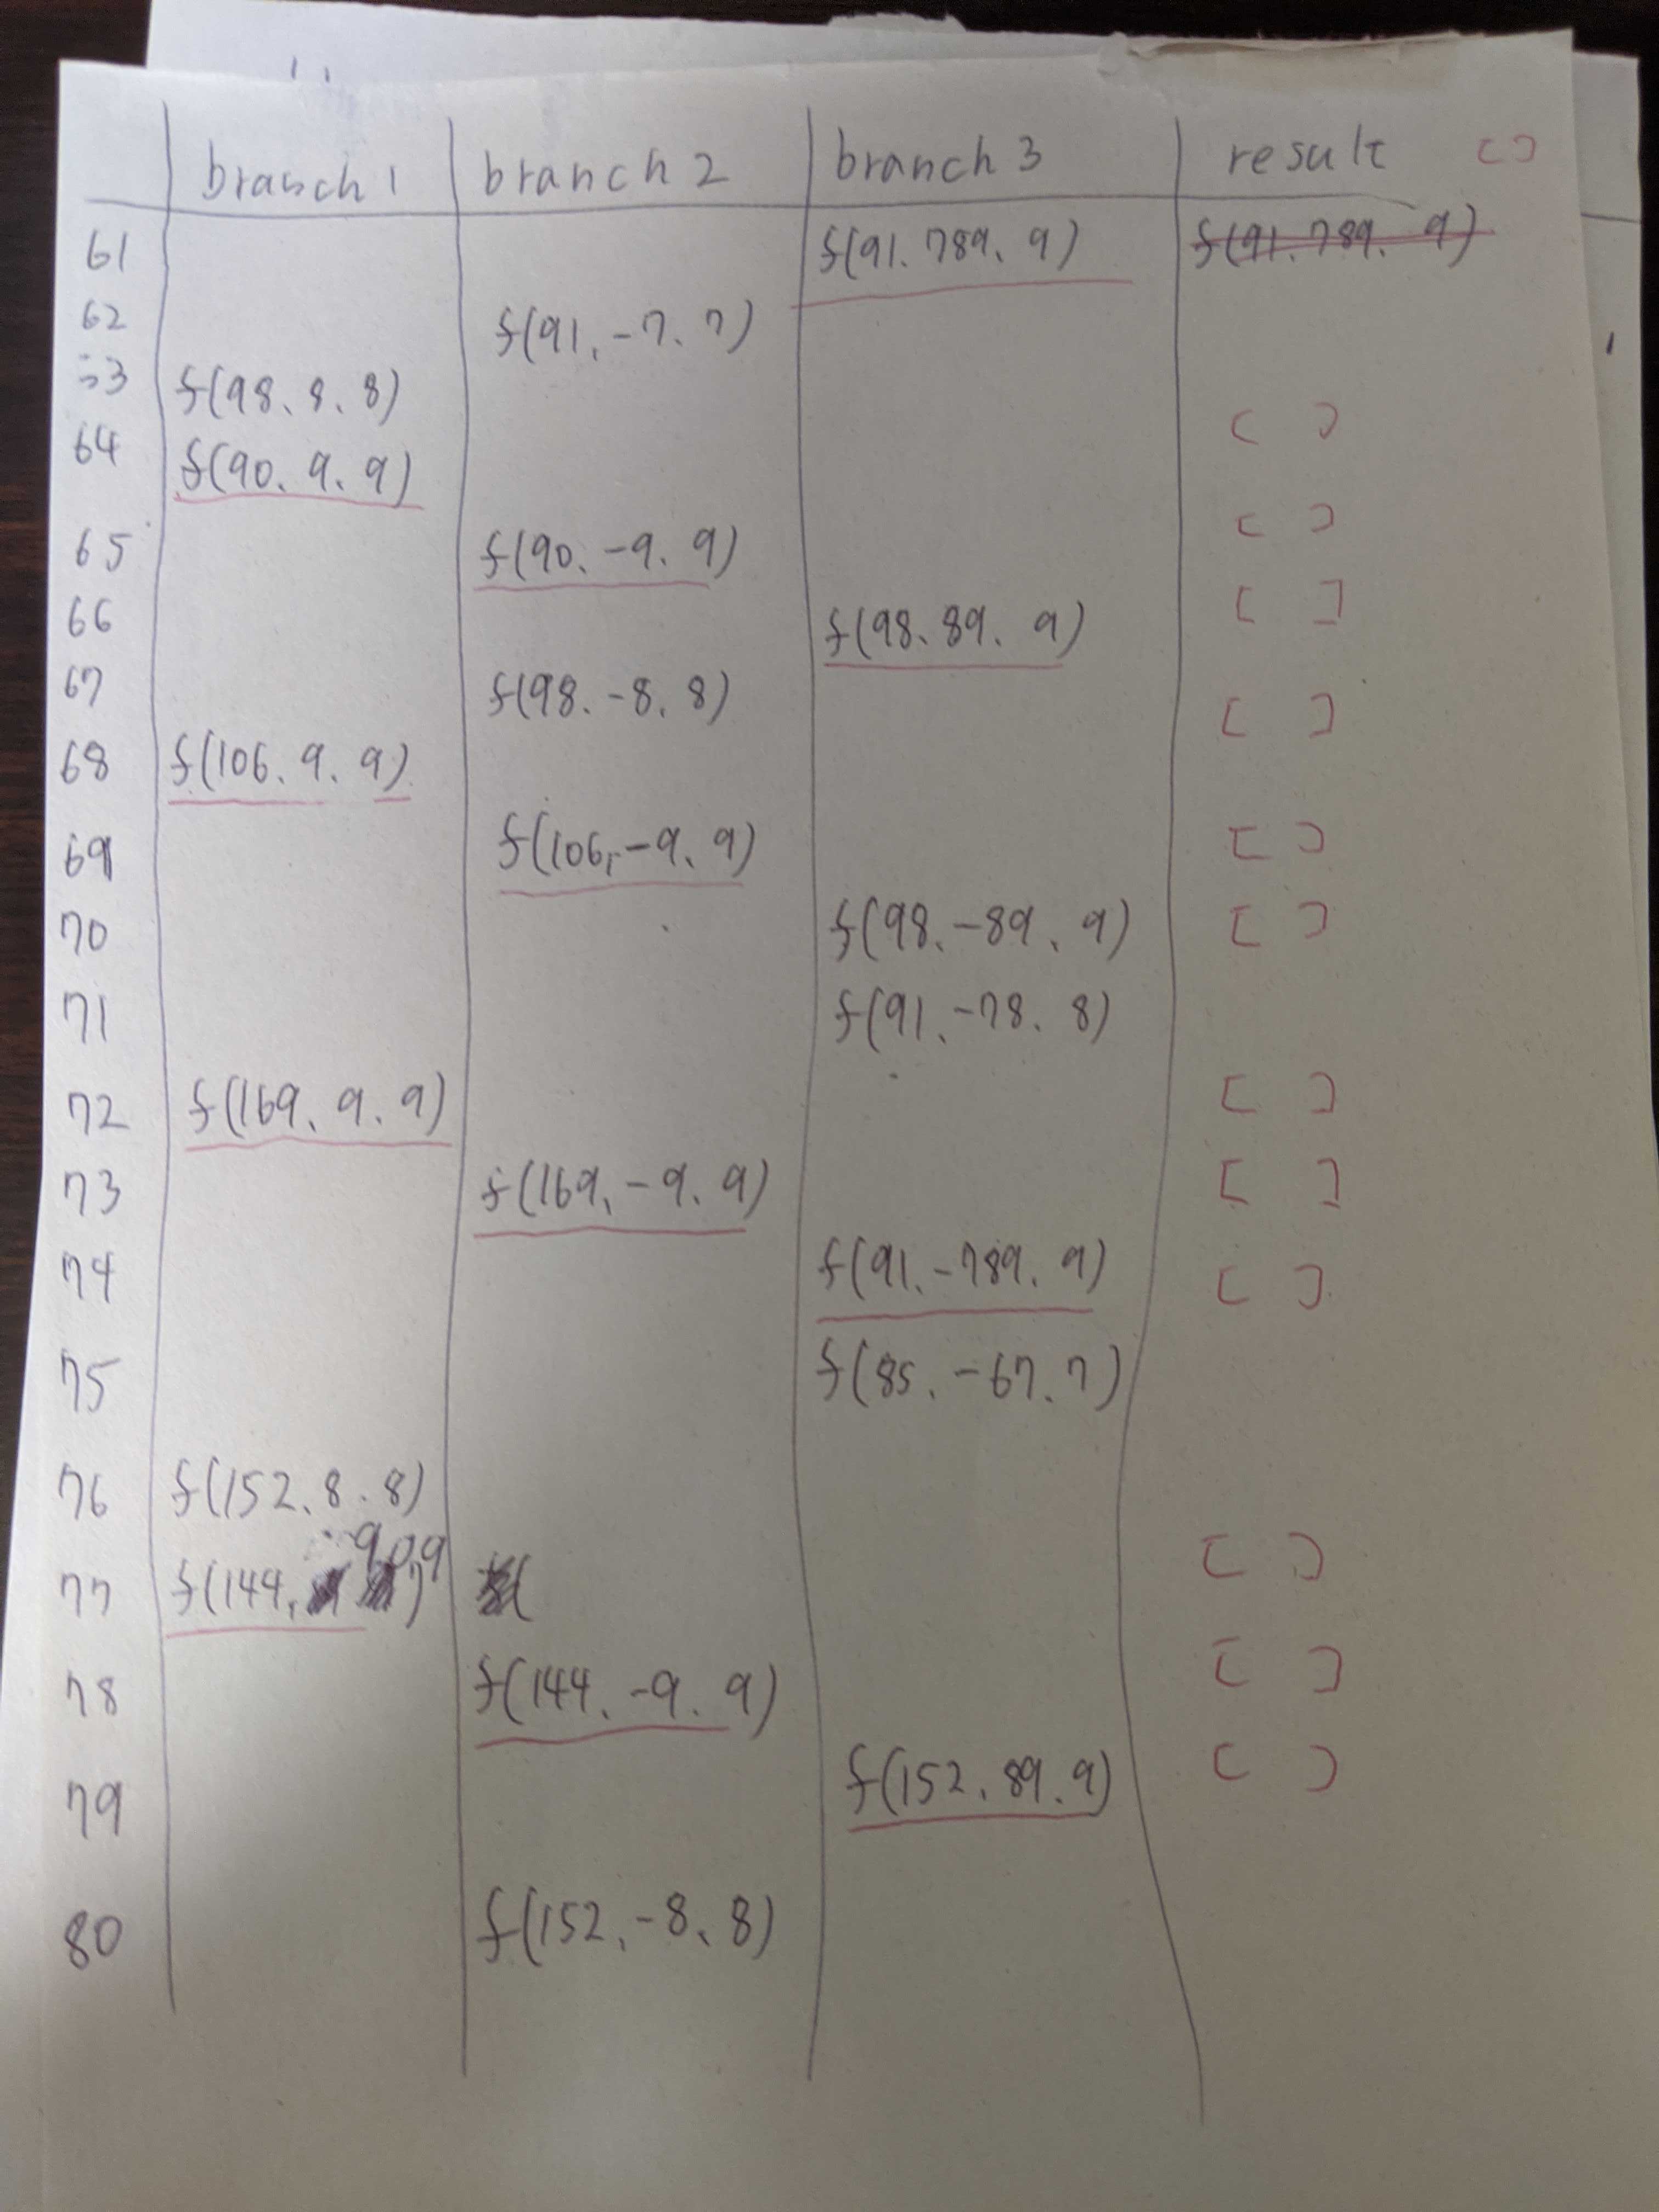 branch 1 branch 2 branch 3 result [ ]
61 f(91, 789, 9) f(91, 789, 9)
62 f(91, -7, 7)
63 f(98, 8, 8)
64 f(90, 9, 9) [ ]
65 f(90, -9, 9) [ ]
66 f(98, 89, 9) [ ]
67 f(98, -8, 8) [ ]
68 f(106, 9, 9)
69 f(106, -9, 9) [ ]
70 f(98, -89, 9) [ ]
71 f(91, -78, 8)
72 f(169, 9, 9) [ ]
73 f(169, -9, 9) [ ]
74 f(91, -789, 9) [ ]
75 f(85, -67, 7)
76 f(152, 8, 8)
77 f(144, 9, 9) [ ]
78 f(144, -9, 9) [ ]
79 f(152, 89, 9) [ ]
80 f(152, -8, 8)